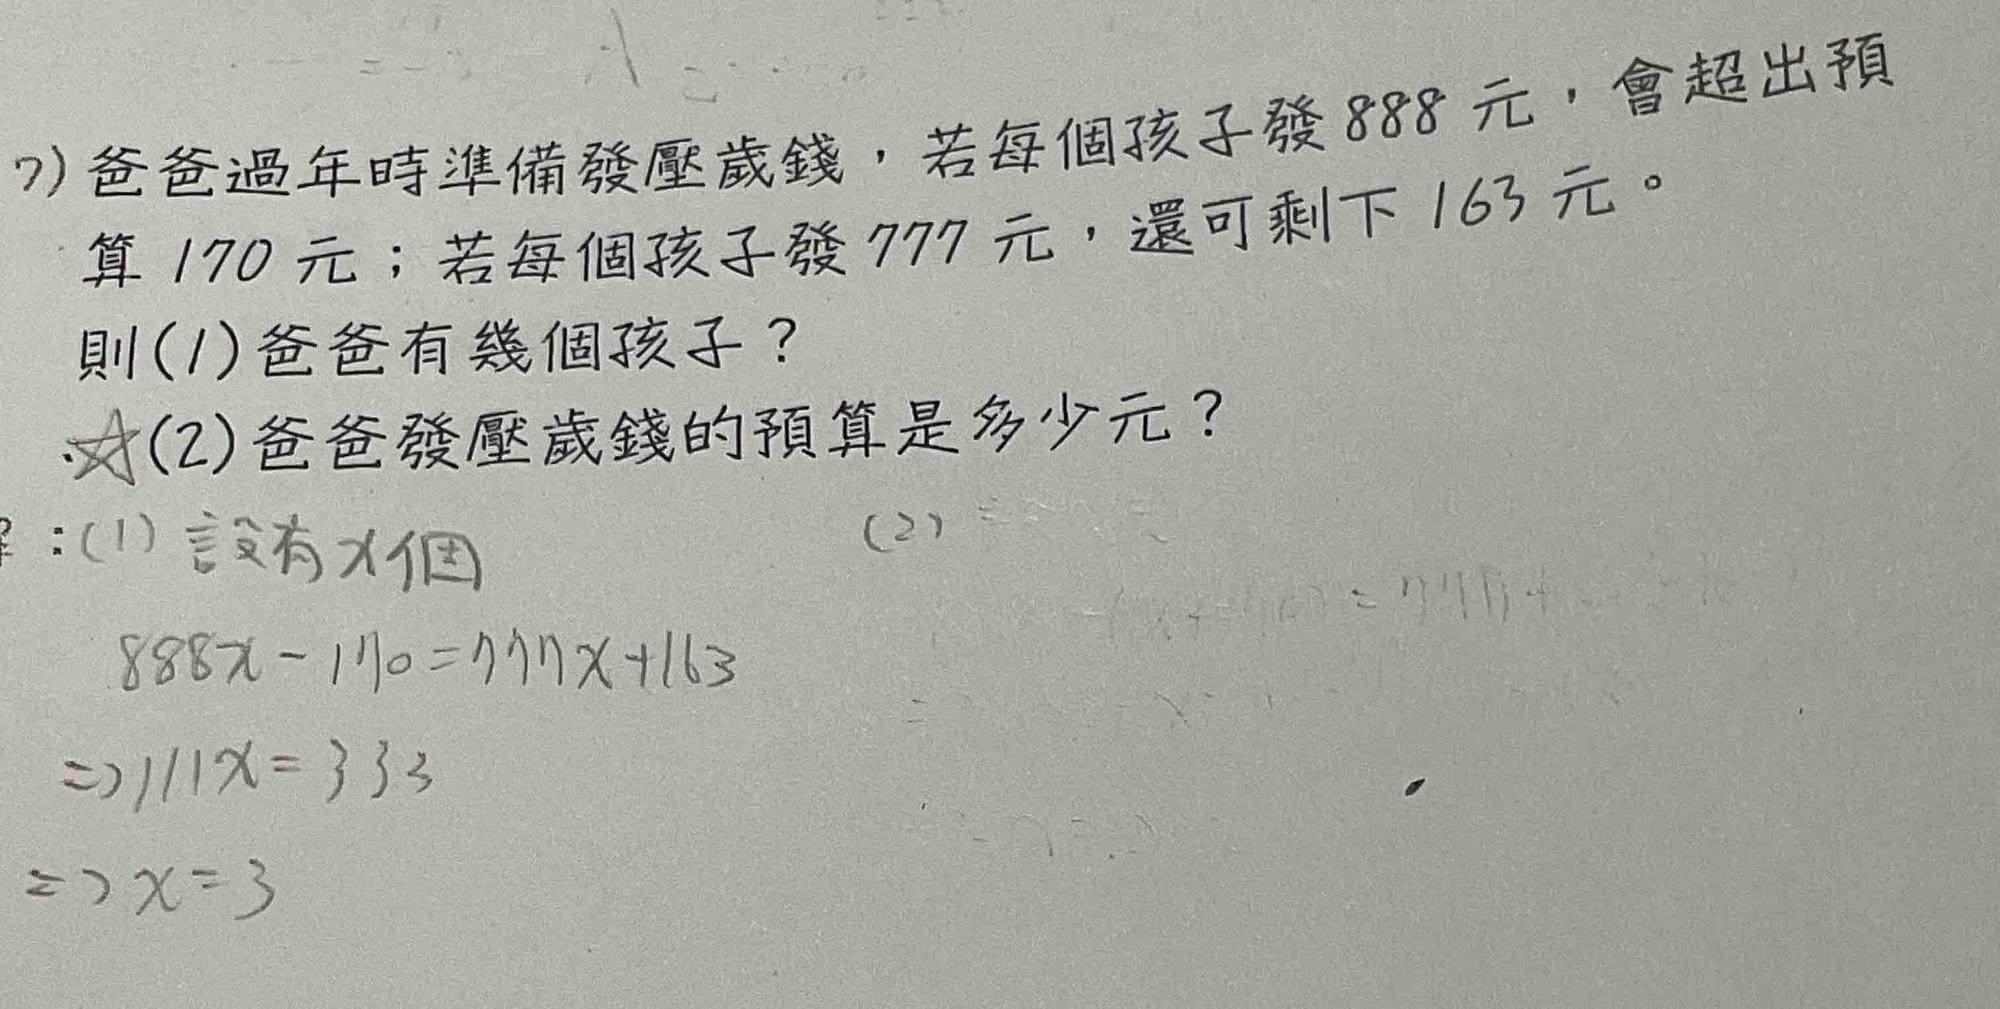 7) 爸爸過年時準備發壓歲錢，若每個孩子發 888 元，會超出預
算 170 元；若每個孩子發 777 元，還可剩下 163 元。
則(1)爸爸有幾個孩子？
☆(2)爸爸發壓歲錢的預算是多少元？
：(1) 設有x個
(2)
888x-170=777x+163
=>111x=333
=>x=3